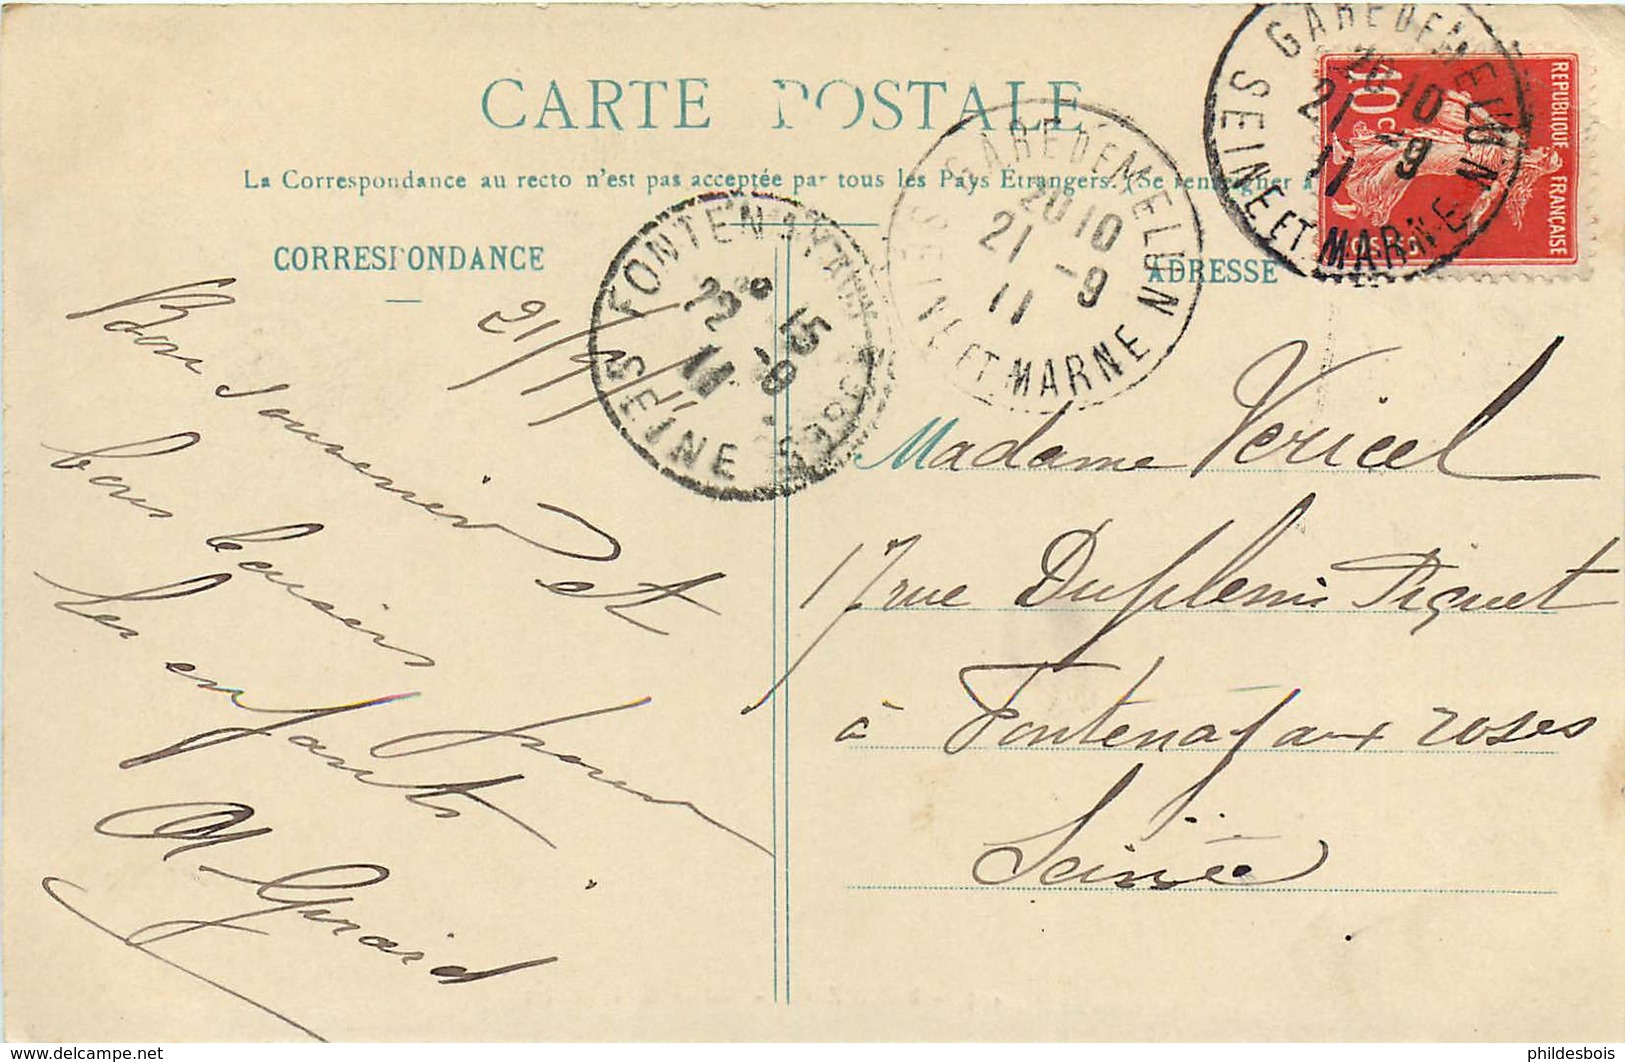 CARTE POSTALE
La Correspondance au recto n'est pas acceptée par tous les Pays Etrangers. (Se renseigner à
CORRESPONDANCE
ADRESSE
GARE DE MELUN
20 10
21 -9
11
SEINE ET MARNE
REPUBLIQUE FRANÇAISE
10 c
GARE DE MELUN
20 10
21 -9
11
SEINE ET MARNE
FONTENAY
15
22 -9
11
SEINE
21/9/11
Bon souvenir et
bons baisers pour
les enfants
Girard
Madame Vericel
17 rue Duplessis Piquet
à Fontenay aux roses
Seine
phildesbois
www.delcampe.net